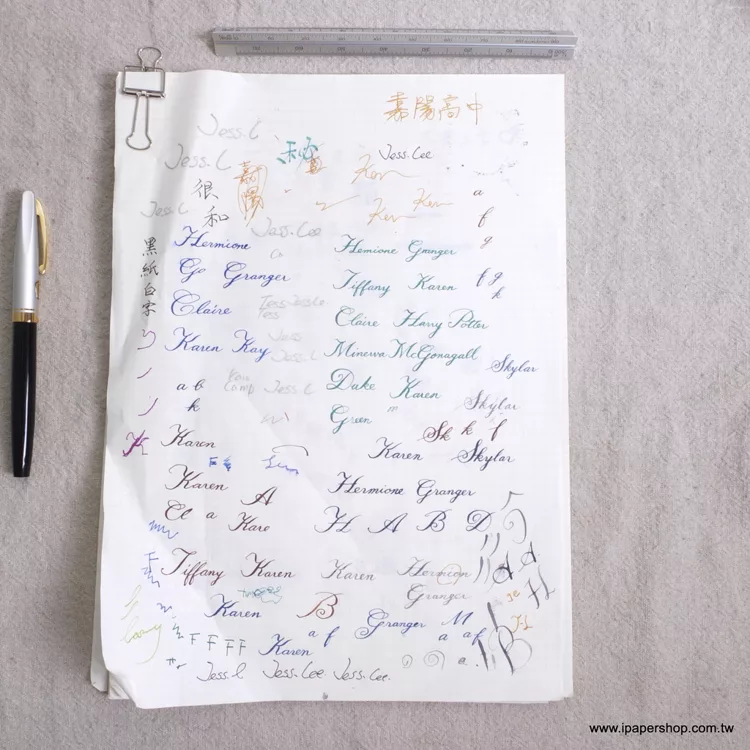 嘉陽高中
Jess.L
Jess.L 秘 Jess.Lee
嘉陽 Ken
很 a
和 Ken Ken
Jess.L Jess.Lee f
Hermione Hemione Granger g
黑紙白字
Ge Granger Tiffany Karen f g
k
Claire Tess Jess Le
Tess Claire Harry Potter
Karen Kay Jess Jess.L Minewa McGonagall Skylar
a b You Camp Jess.L Dake Karen Skylar
k m
Green Sk k f
K Karen Karen Skylar
F
Karen A Hermione Granger
Cl a Kare H A B D
Tiffany Karen Karen Hermion
Granger
Karen B Granger M
a f a af
F F F F Karen B
Jess.l Jess.Lee Jess.Lee. a.
www.ipapershop.com.tw